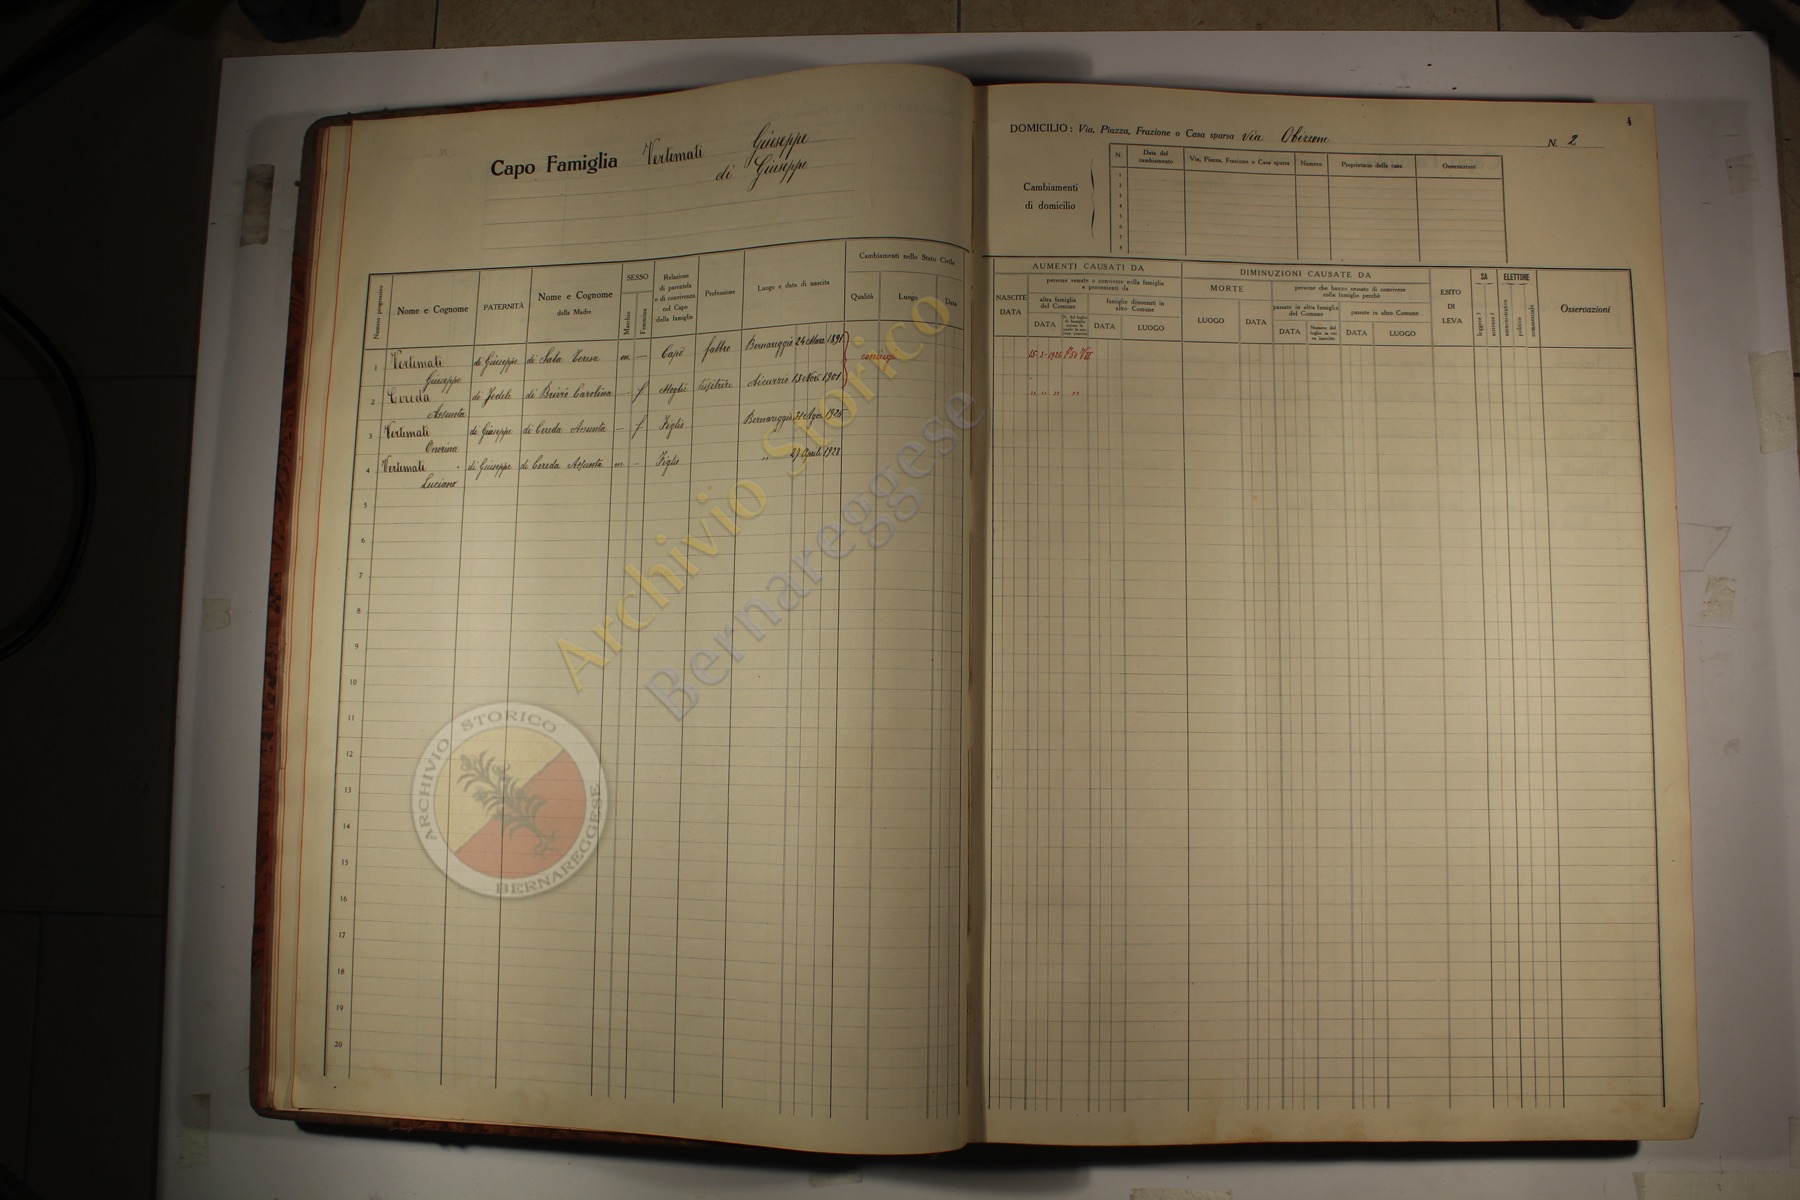 Capo Famiglia Vertemati Giuseppe
di Giuseppe
4
DOMICILIO : Via, Piazza, Frazione o Casa sparsa Via N. 2
Cambiamenti
di domicilio
N. Data del cambiamento Via, Piazza, Frazione o Casa sparsa Numero Proprietario della casa Osservazioni
1
2
3
4
5
6
7
8
Numero progressivo
Nome e Cognome
PATERNITÀ
Nome e Cognome
della Madre
SESSO
Maschio
Femmina
Relazione
di parentela
o di convivenza
col Capo
della famiglia
Professione
Luogo e data di nascita
Cambiamenti nello Stato Civile
Qualità Luogo Data
NASCITE
DATA
AUMENTI CAUSATI DA
persone venute a convivere nella famiglia
e provenienti da
altra famiglia
del Comune
DATA
famiglie dimoranti in
altro Comune
DATA LUOGO
DIMINUZIONI CAUSATE DA
MORTE
LUOGO DATA
persone che hanno cessato di convivere
colla famiglia perchè
passate in altra famiglia
del Comune
DATA
passate in altro Comune
DATA LUOGO
ESITO
DI
LEVA
SA
leggere ?
scrivere ?
ELETTORE
amministrativo
politico
commerciale
Osservazioni
1 Vertemati Giuseppe di Giuseppe di Sala Teresa m — Capo fabbro Bernareggio 24 1891 coniugi 15-3-1926
2 Cereda Assunta di Fedele di Brivio Carolina — f Moglie Aicurzio 13 Nov. 1901 " " " "
3 Vertemati Onorina di Giuseppe di Cereda Assunta — f Figlia Bernareggio 31 Ago. 1926
4 Vertemati Luciano di Giuseppe di Cereda Assunta m — Figlio " 27 Aprile 1928
5
6
7
8
9
10
11
12
13
14
15
16
17
18
19
20
Archivio Storico
Bernareggese
ARCHIVIO STORICO
BERNAREGGESE